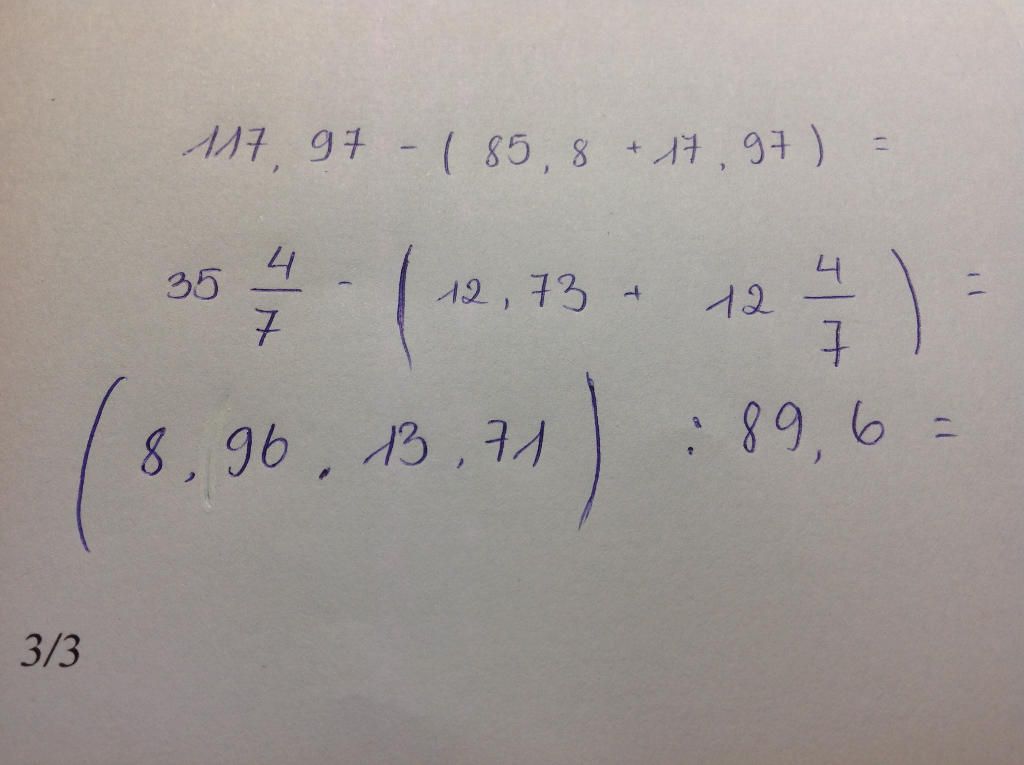 117,97 - (85,8 + 17,97) =
35 4/7 - (12,73 + 12 4/7) =
(8,96 . 13,71) : 89,6 =
3/3